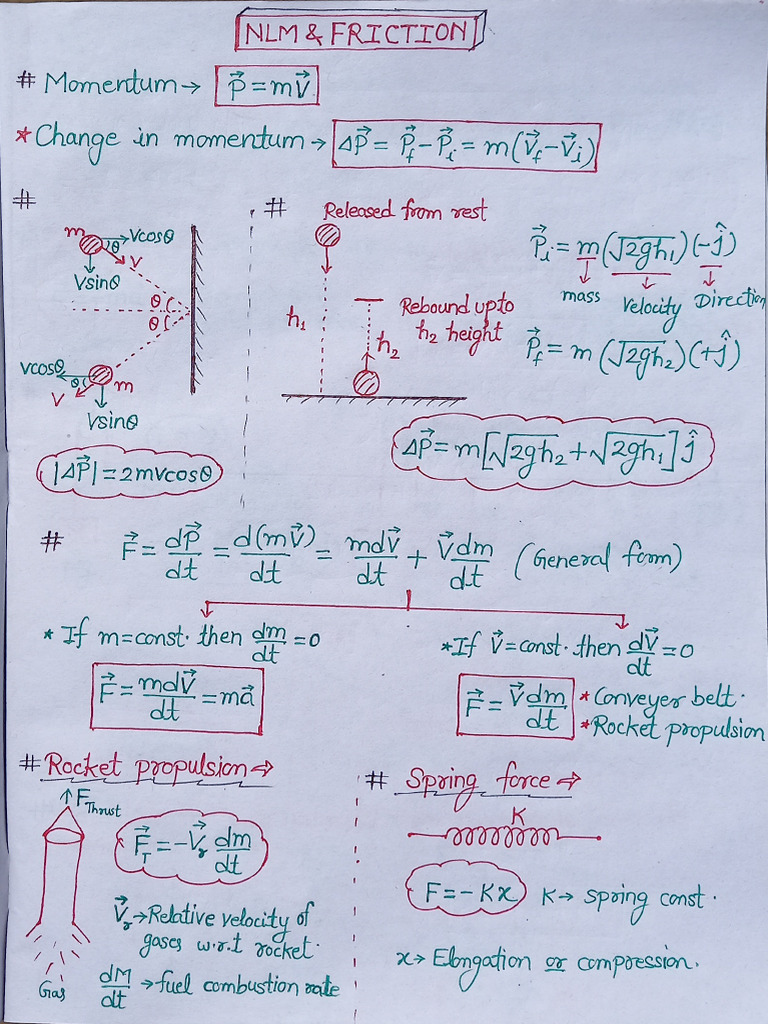 NLM & FRICTION
# Momentum → P⃗ = mV⃗
* Change in momentum → ΔP⃗ = P⃗f − P⃗i = m(V⃗f − V⃗i)
#
m
θ
vcosθ
V
Vsinθ
θ
θ
vcosθ
θ
V
m
Vsinθ
|ΔP⃗| = 2mvcosθ
#
Released from rest
h₁
Rebound upto
h₂ height
h₂
P⃗i = m(√2gh₁)(−ĵ)
mass Velocity Direction
P⃗f = m(√2gh₂)(+ĵ)
ΔP⃗ = m[√2gh₂ + √2gh₁]ĵ
# F⃗ = dP⃗/dt = d(mV⃗)/dt = mdV⃗/dt + V⃗dm/dt (General form)
* If m=const. then dm/dt = 0
F⃗ = mdV⃗/dt = ma⃗
* If V⃗=const. then dV⃗/dt = 0
F⃗ = V⃗dm/dt
* Conveyer belt.
* Rocket propulsion
# Rocket propulsion ⇒
↑ FThrust
F⃗T = −V⃗r dm/dt
V⃗r → Relative velocity of
gases w.r.t rocket.
dM/dt → fuel combustion rate
Gas
# Spring force ⇒
K
F = −Kx
K → spring const.
x → Elongation or compression.